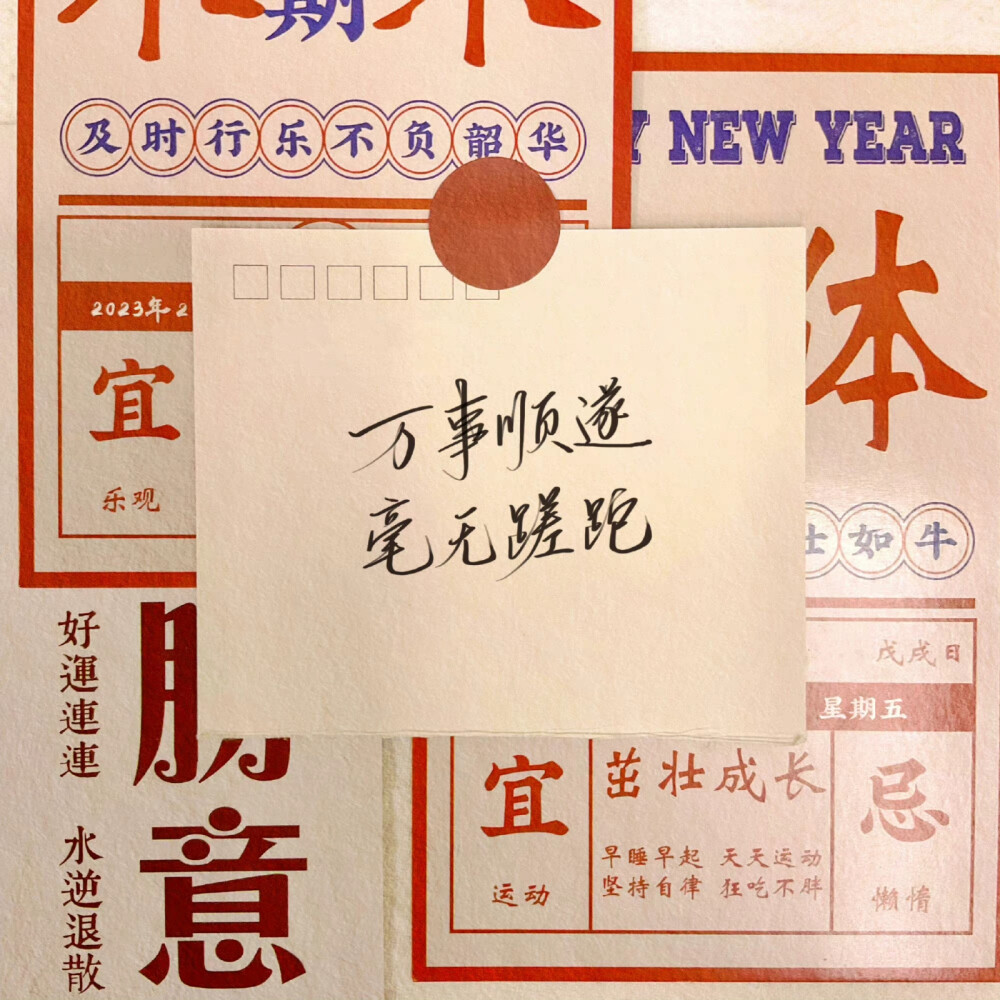 期
及时行乐不负韶华
2023年2
宜
乐观
NEW YEAR
体
如牛
戊戌日
星期五
万事顺遂
毫无蹉跎
宜
运动
茁壮成长
早睡早起 天天运动
坚持自律 狂吃不胖
忌
懒惰
好運連連
水逆退散
意